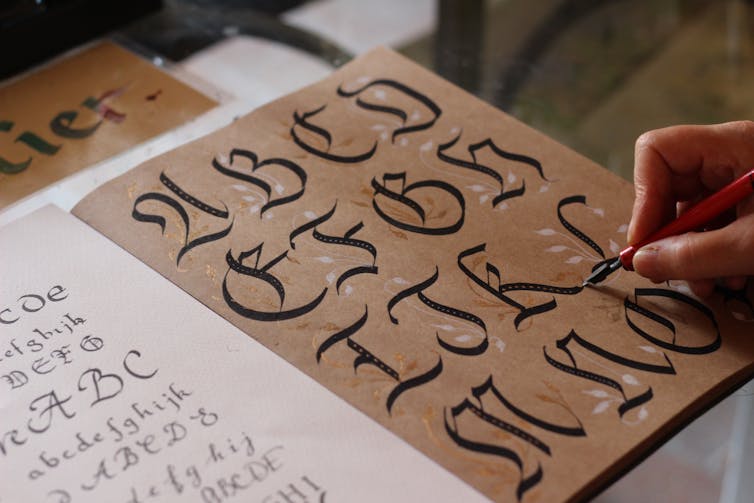 lier
A B C D
E F G H
I J K L
M N O
cDe
efghijk
DEFG
ABC
abcdefghijk
ABCD
efghij
ABCDE